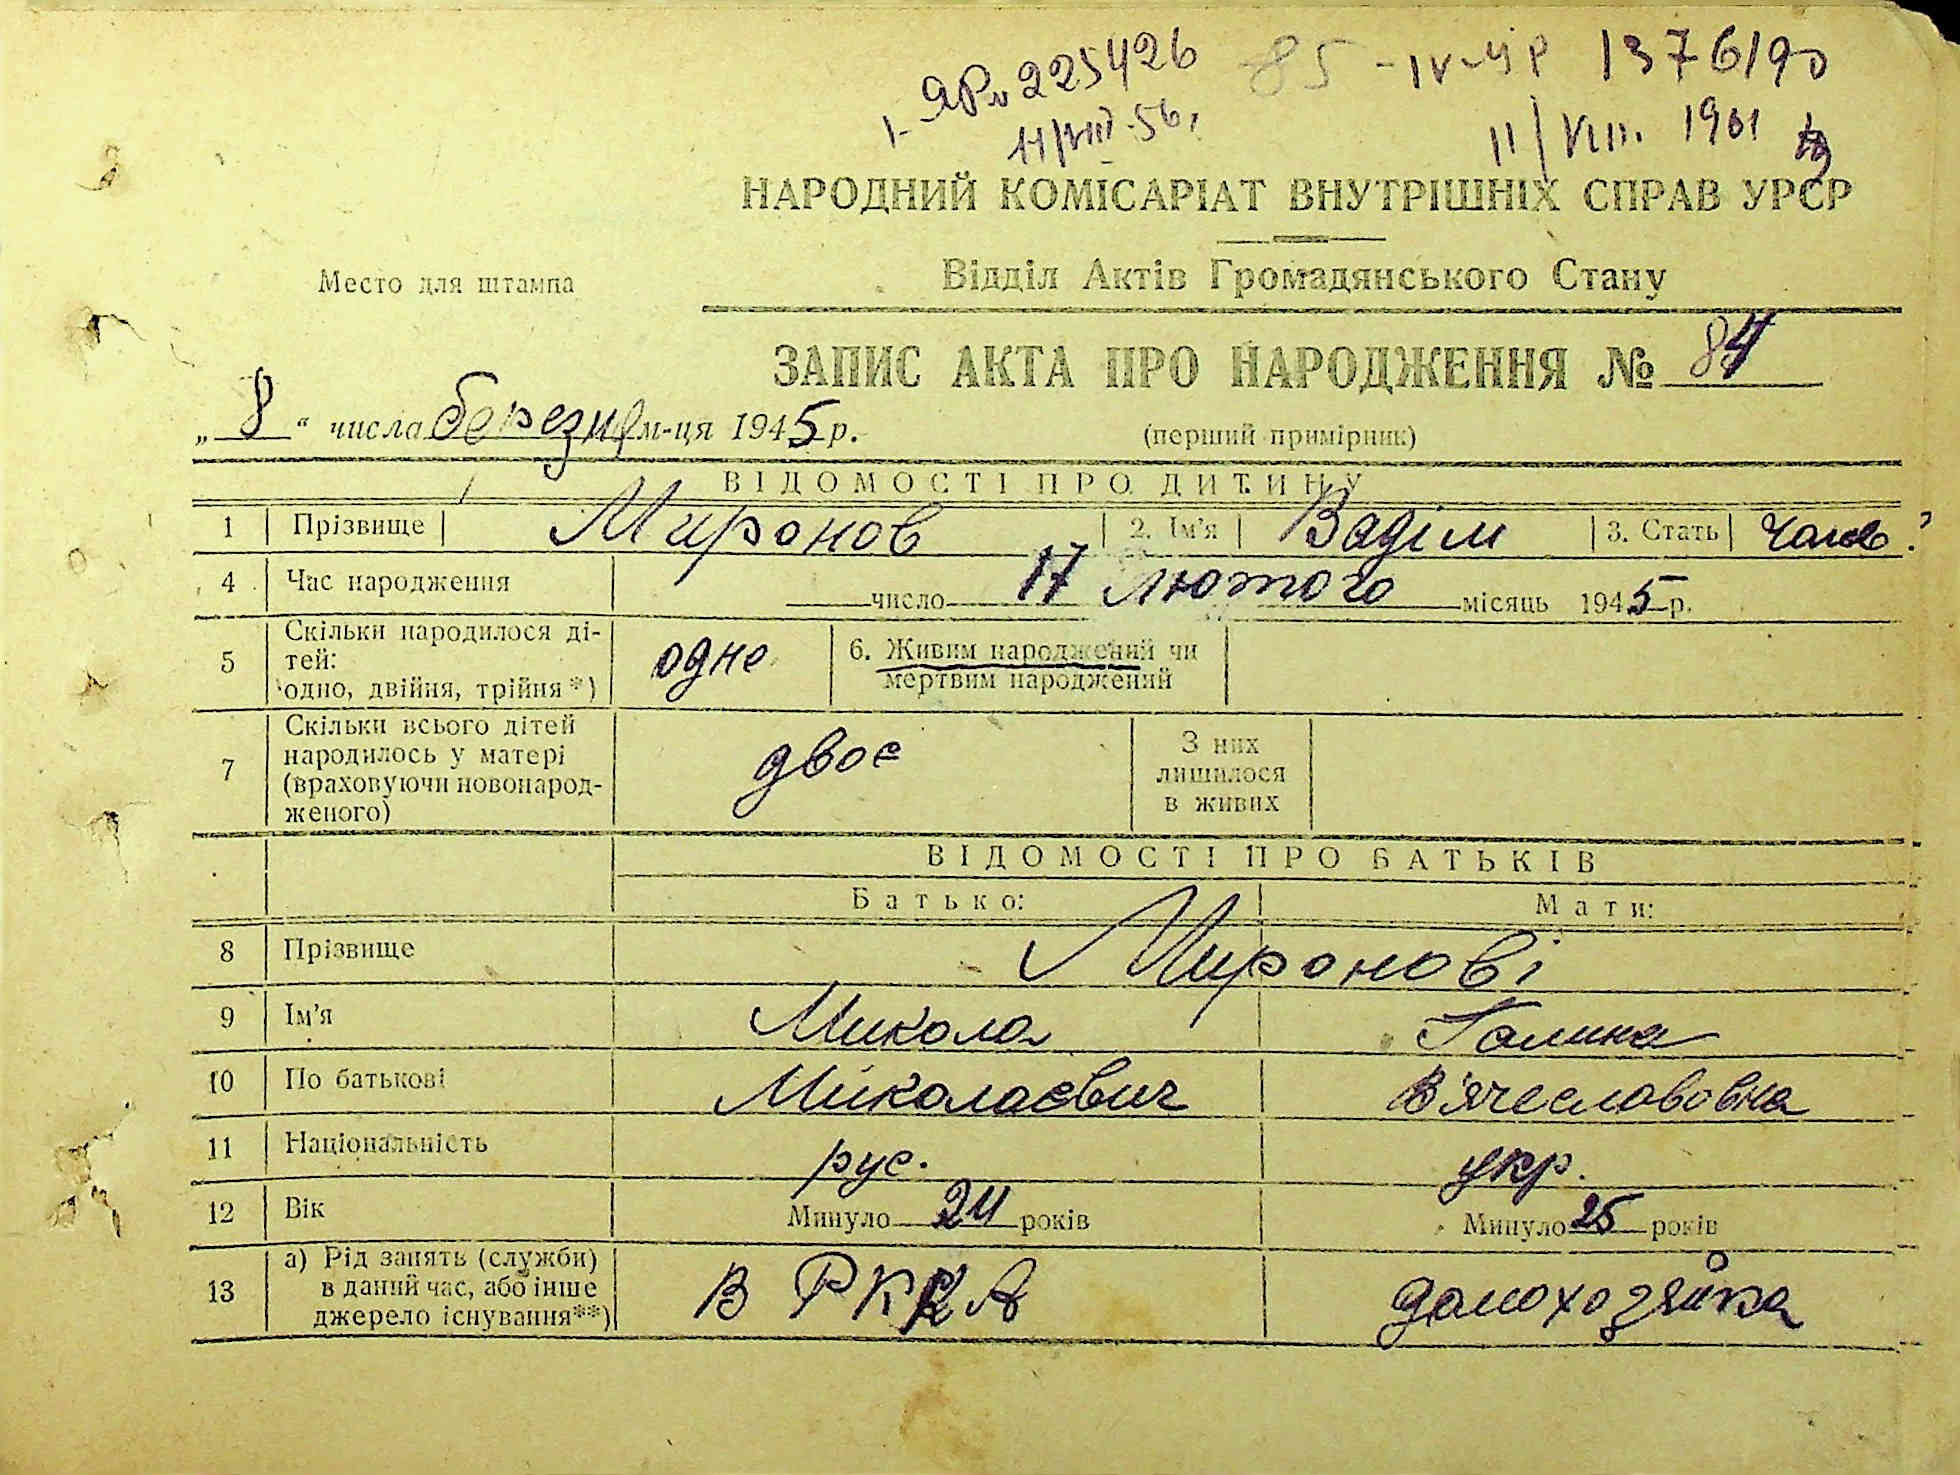 1-ЯР № 225426
11/VIII-56 г.
85 - IV-ЧР 137619
11/VIII. 1961
НАРОДНИЙ КОМІСАРІАТ ВНУТРІШНІХ СПРАВ УРСР
Место для штампа
Відділ Актів Громадянського Стану
ЗАПИС АКТА ПРО НАРОДЖЕННЯ № 84
„8“ числа березня м-ця 1945 р.
(перший примірник)
ВІДОМОСТІ ПРО ДИТИНУ
1 Прізвище Миронов 2. Ім'я Вадім 3. Стать чолов.
4 Час народження число 17 лютого місяць 1945 р.
5 Скільки народилося ді-
тей:
одно, двійня, трійня*) одне 6. Живим народжений чи
мертвим народжений
7 Скільки всього дітей
народилось у матері
(враховуючи новонарод-
женого) двоє З них
лишилося
в живих
ВІДОМОСТІ ПРО БАТЬКІВ
Батько: Мати:
8 Прізвище Миронові
9 Ім'я Микола Галина
10 По батькові Миколаєвич В'ячеславовна
11 Національність рус. укр.
12 Вік Минуло 24 років Минуло 25 років
13 а) Рід занять (служби)
в даний час, або інше
джерело існування**) В РККА домохозяйка